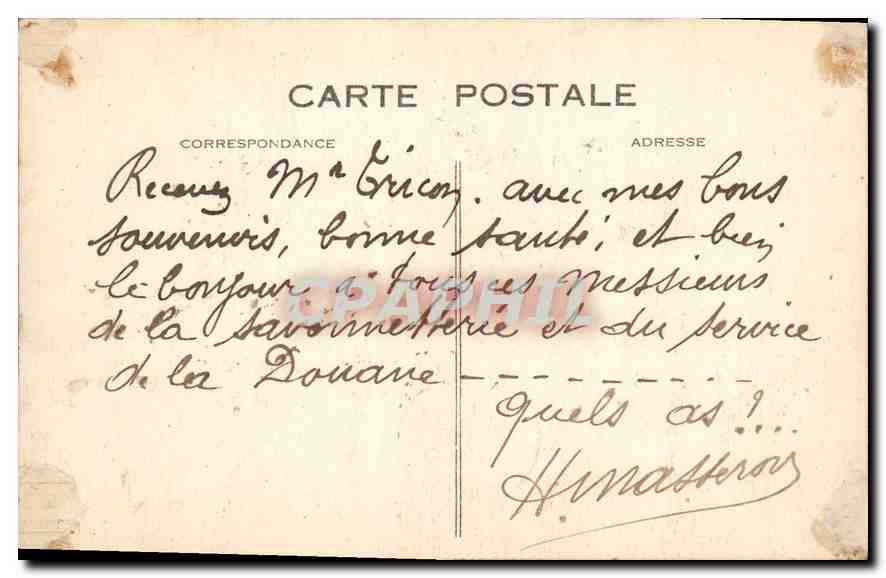 CARTE POSTALE
CORRESPONDANCE
ADRESSE
Recevez Mr Tricon. avec mes bons
souvenirs, bonne santé, et bien
le bonjour à tous ces Messieurs
de la savonnetterie et du service
de la Douane - - - - - - - -
Quels as !....
CPAPHIL